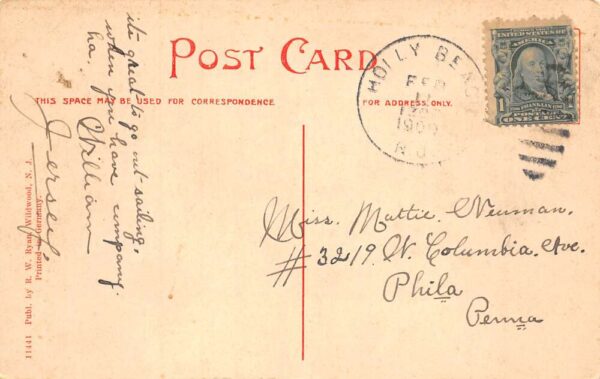 POST CARD
THIS SPACE MAY BE USED FOR CORRESPONDENCE.
FOR ADDRESS ONLY.
its great to go out-sailing,
when you have company.
ha.
William
Jersey,
Miss. Mattie. Neuman.
#3219. W. Columbia. Ave.
Phila
Penna
HOLLY BEAC
FEB
1909
N.J.
UNITED STATES OF
AMERICA
1
FRANKLIN
POSTAGE
ONE CENT
11441 Publ. by R. W. Ryan, Wildwood, N. J.
Printed in Germany.